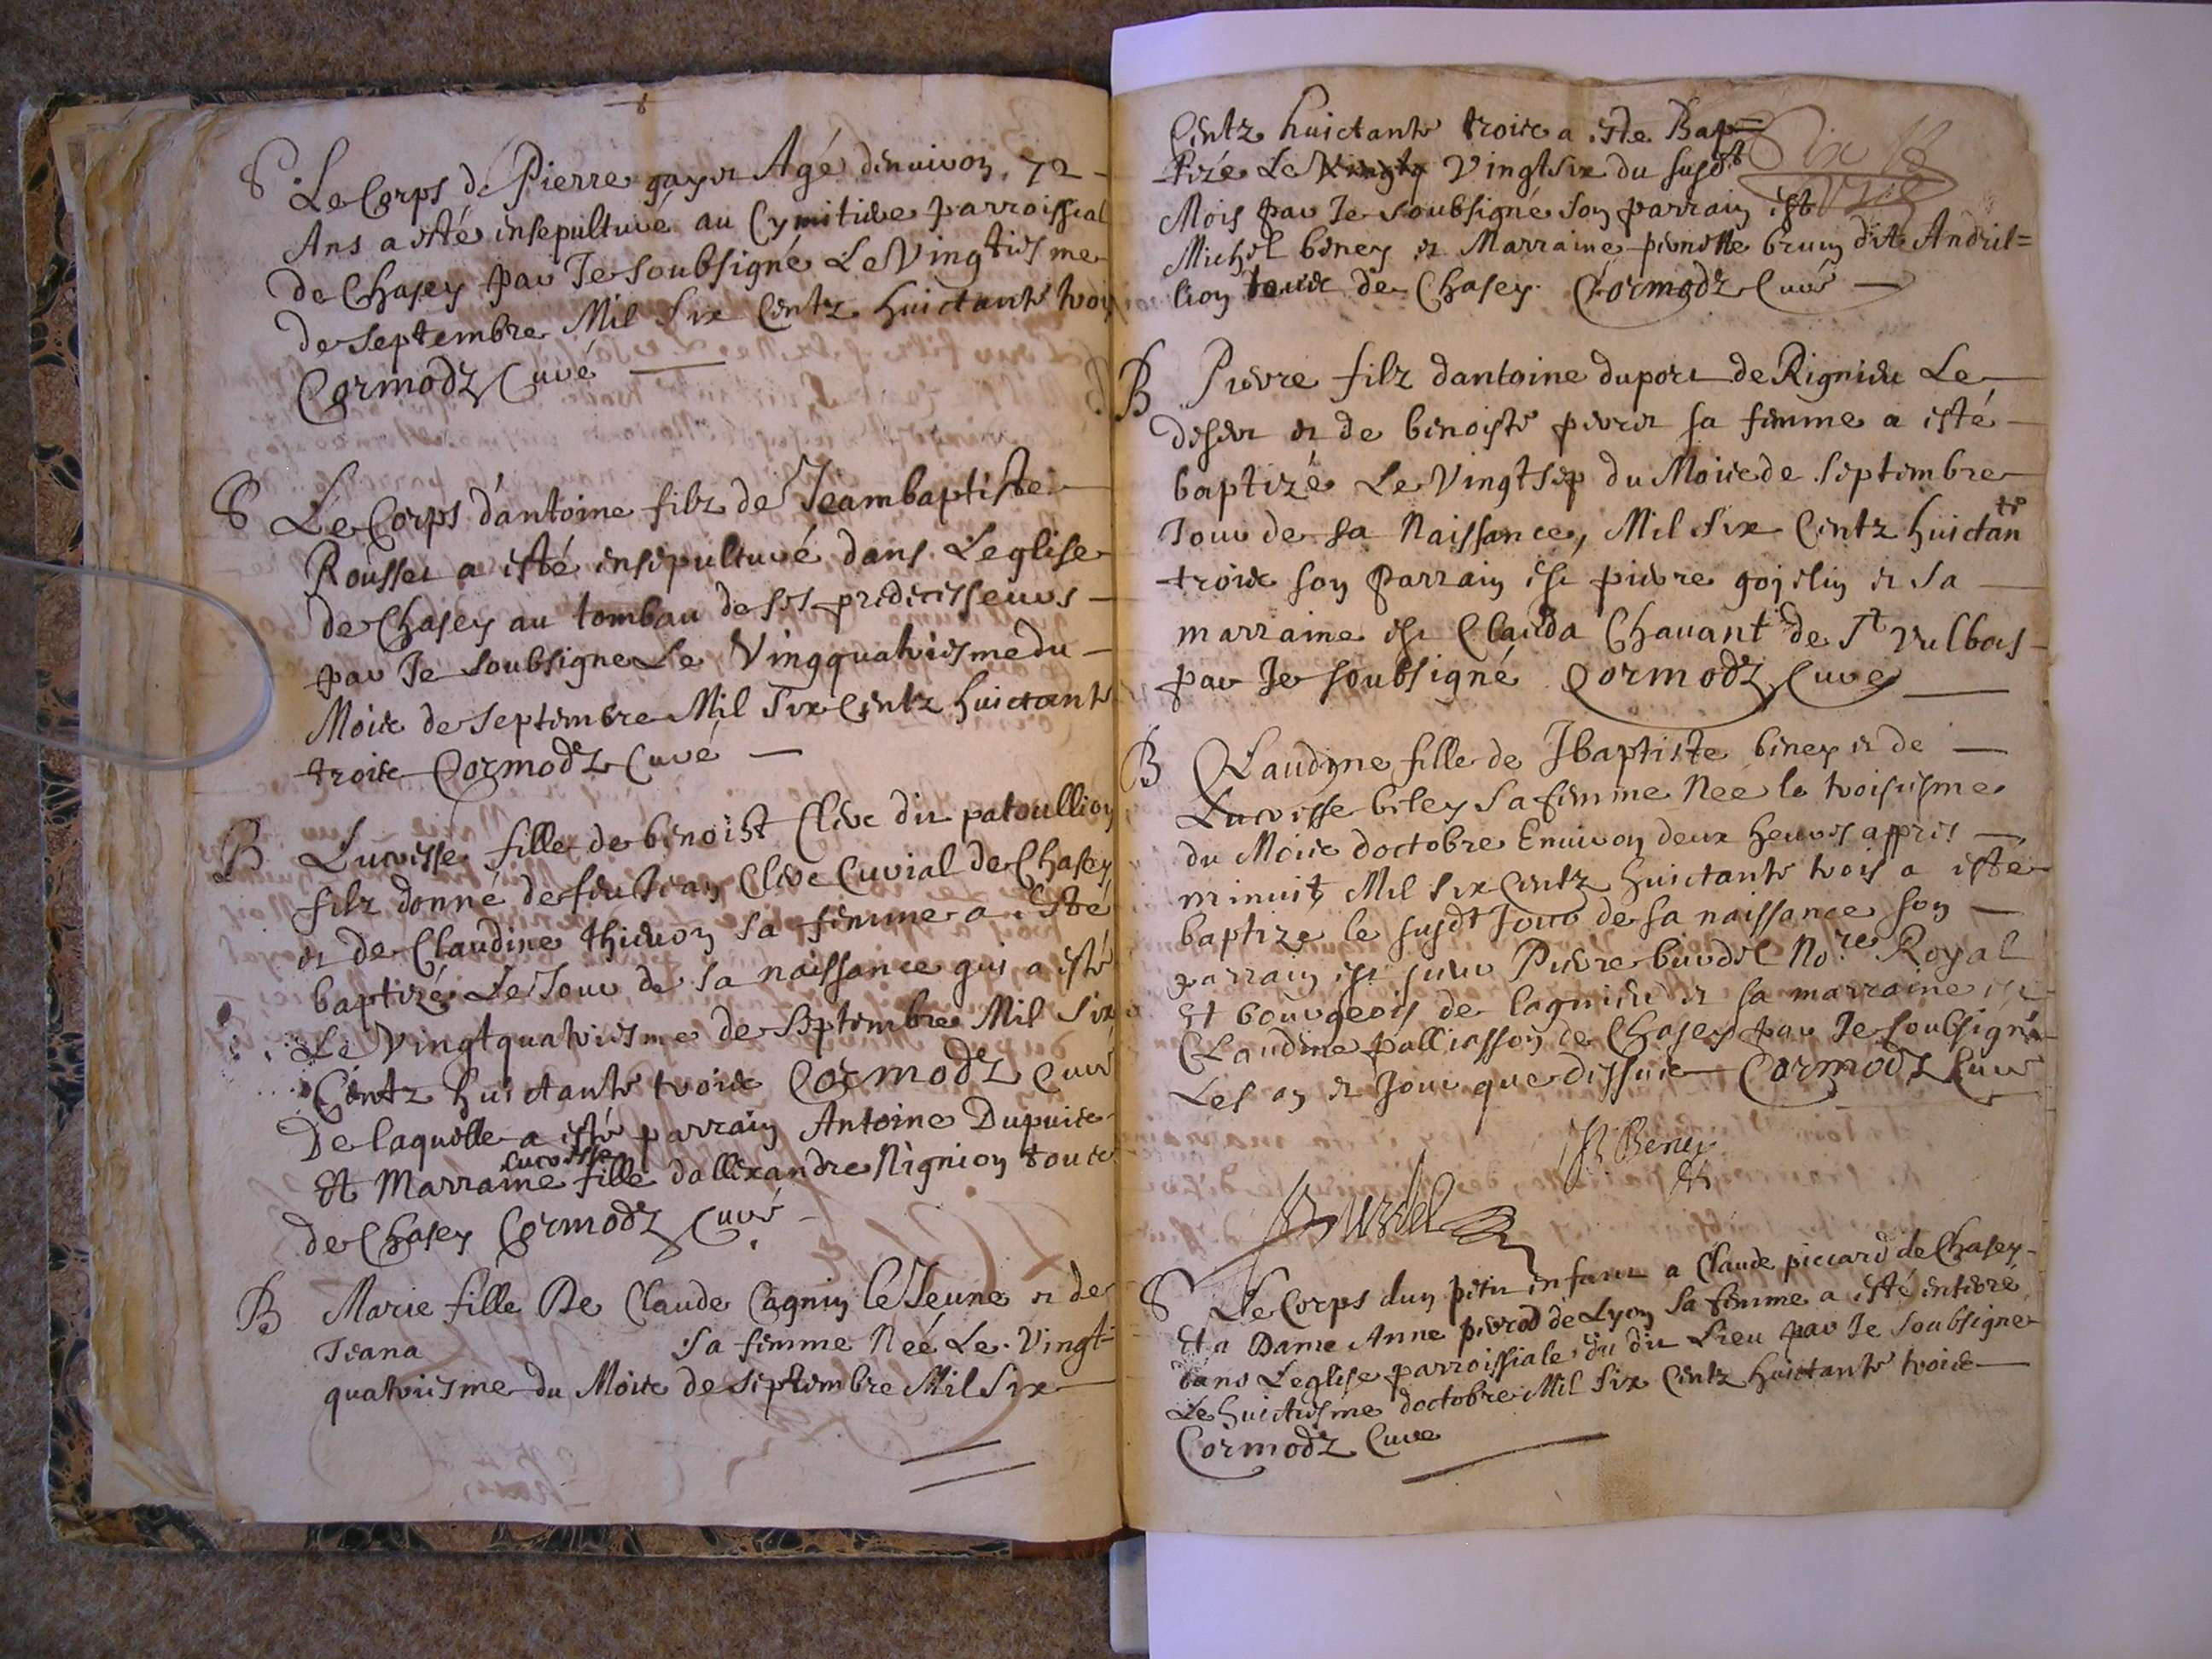 S Le Corps de Pierre gayet Agé denuiron 72
Ans a esté insepulturé au Cymitiere parroissial
de Chasey par Je soubsigné Le Vingtiesme
de septembre Mil Six Centz huictante trois
Cormodz Curé
S Le Corps d'antoine filz de Jeambaptiste
Rousset a esté insepulturé dans Leglise
de Chasey au tombau de ses predecesseurs
par Je soubsigne Le Vingquatriesme du
Moise de septembre Mil Six Centz huictante
troise Cormodz Curé
B Lucresse fille de benoist Clerc dit patoullion
filz donné de feu Jean Clerc Curial de Chasey
et de Claudine thieuon sa femme a esté
baptizé Le Jour de sa naissance qui a esté
Le Vingtquatriesme de septembre Mil Six
Centz huictante troise Cormodz Curé
De laquelle a esté parrain Antoine Dupuise
Lucresse
Et Marraine fille dallexandre Nignion touts
de Chasey Cormodz Curé
B Marie fille De Claude Cagnin le Jeune et de
Jeana sa femme Née Le Vingt=
quatriesme du Moise de septembre Mil Six
Centz huictante troise a este Bap=
tizée Le Vingt Six du susdt
Mois par Je soubsigné son parrain est
Michel beney et Marraine pernette brun dite Andril=
lion touts de Chasey Cormodz Curé
B Pierre filz dantoine duport de Rignieu Le
desert et de benoiste perret sa femme a esté
baptizé Le Vingtsep du Moise de septembre
Jour de sa Naissance, Mil Six Centz huictante
troise son parrain est pierre gojelin et sa
marraine est Clauda Chauant de St Vulbas
par Je soubsigné Cormodz Curé
B Claudyne fille de Jbaptiste beney et de
Lucresse biley sa femme Née le troisiesme
du Moise doctobre Enuiron deux heures appres
minuit Mil Six Centz huictante trois a esté
baptize le susdt Jour de sa naissance son
parrain est sieur Pierre burdel No.re Royal
Et bourgeois de lagnieu et sa marraine est
Claudine palliasson de Chasey par Je soubsigné
Les an et Jour que dessuse Cormodz Curé
JB Beney
Burdel
S Le Corps dun petit enfant a Claude piccard de Chasey
Et a Dame Anne pierod de Lyon sa femme a esté enterré
dans Leglise parroissiale du dit Lieu par Je soubsigne
Le huictiesme doctobre Mil Six Centz huictante troise
Cormodz Cure